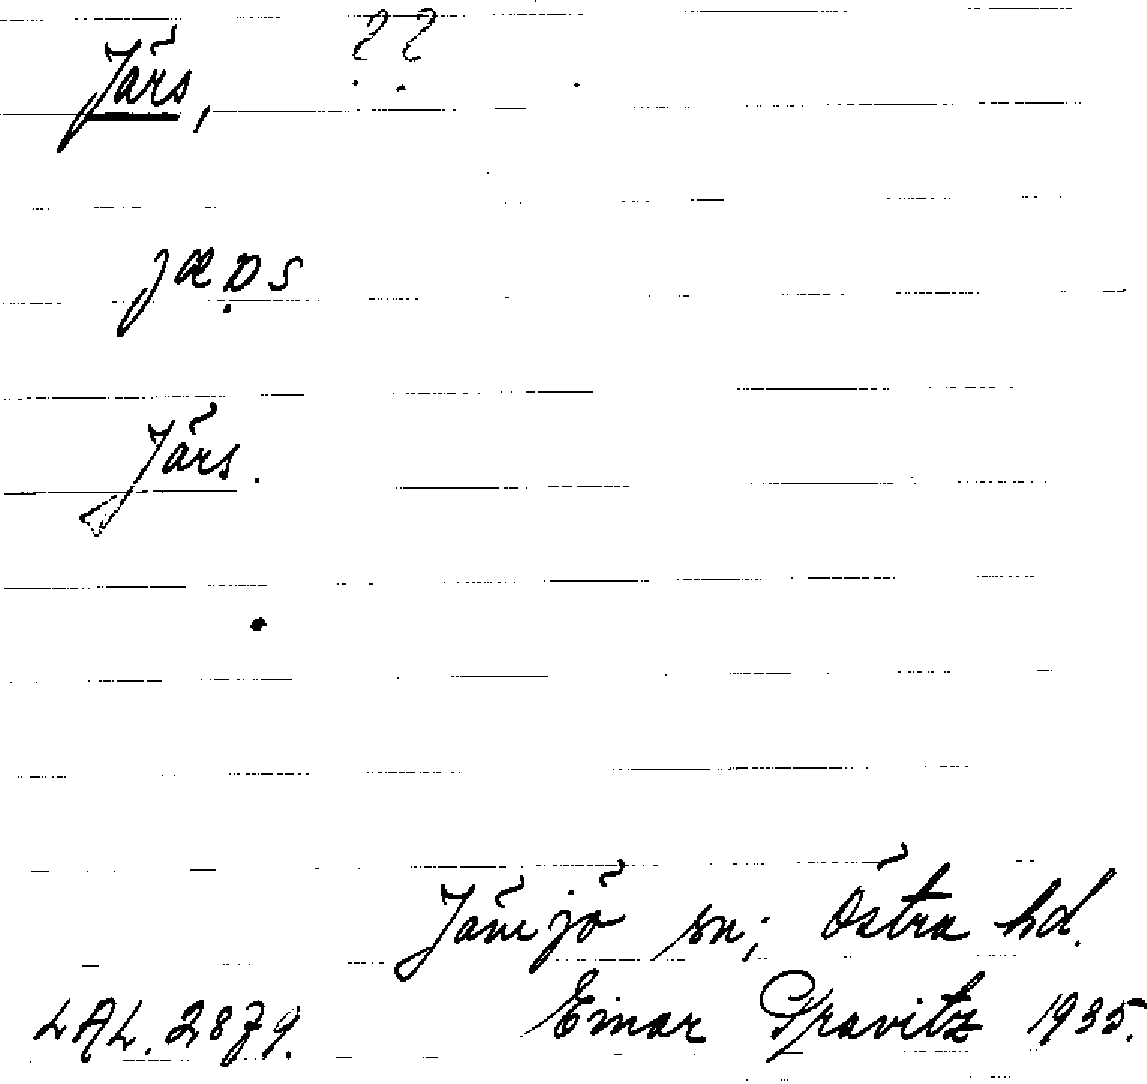 Järs, ??
jæʀ̣s
Järs.
Jämjö sn; Östra hd.
LAL. 2879. Einar Gravitz 1935.